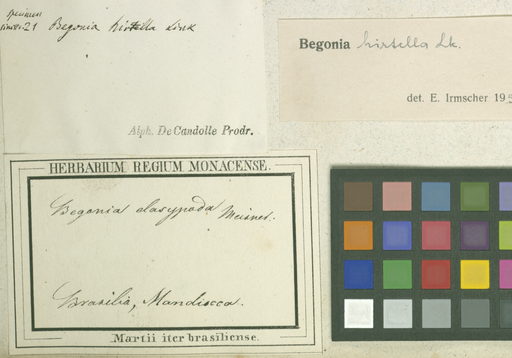 specimen
21 Begonia hirtella Link
Alph. De Candolle Prodr.
Begonia hirtella Lk.
det. E. Irmscher 195
HERBARIUM REGIUM MONACENSE.
Begonia dasypoda Meisner.
Brasilia, Mandiocca.
Martii iter brasiliense.